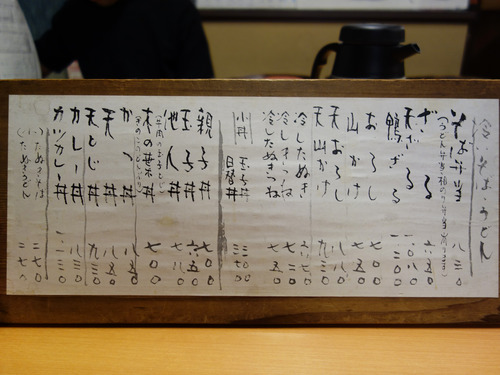 冷いそば・うどん
そば弁当 八三〇
ざる 六五〇
天ざる 一、〇八〇
鴨ざる 一、二〇〇
おろし 七〇〇
山かけ 七五〇
天おろし 八八〇
天山かけ 九三〇
冷したぬき
冷しきつね
冷したぬきつね 七五〇
小丼 玉子丼
日替丼
親子丼 七〇〇
玉子丼 六五〇
他人丼 七八〇
木の葉丼 七〇〇
かつ丼 八五〇
天丼 八五〇
天とじ丼 九三〇
カレー丼 八三〇
カツカレー丼 一、一三〇
いたぬきそば 二七〇
いたぬきうどん 二七〇